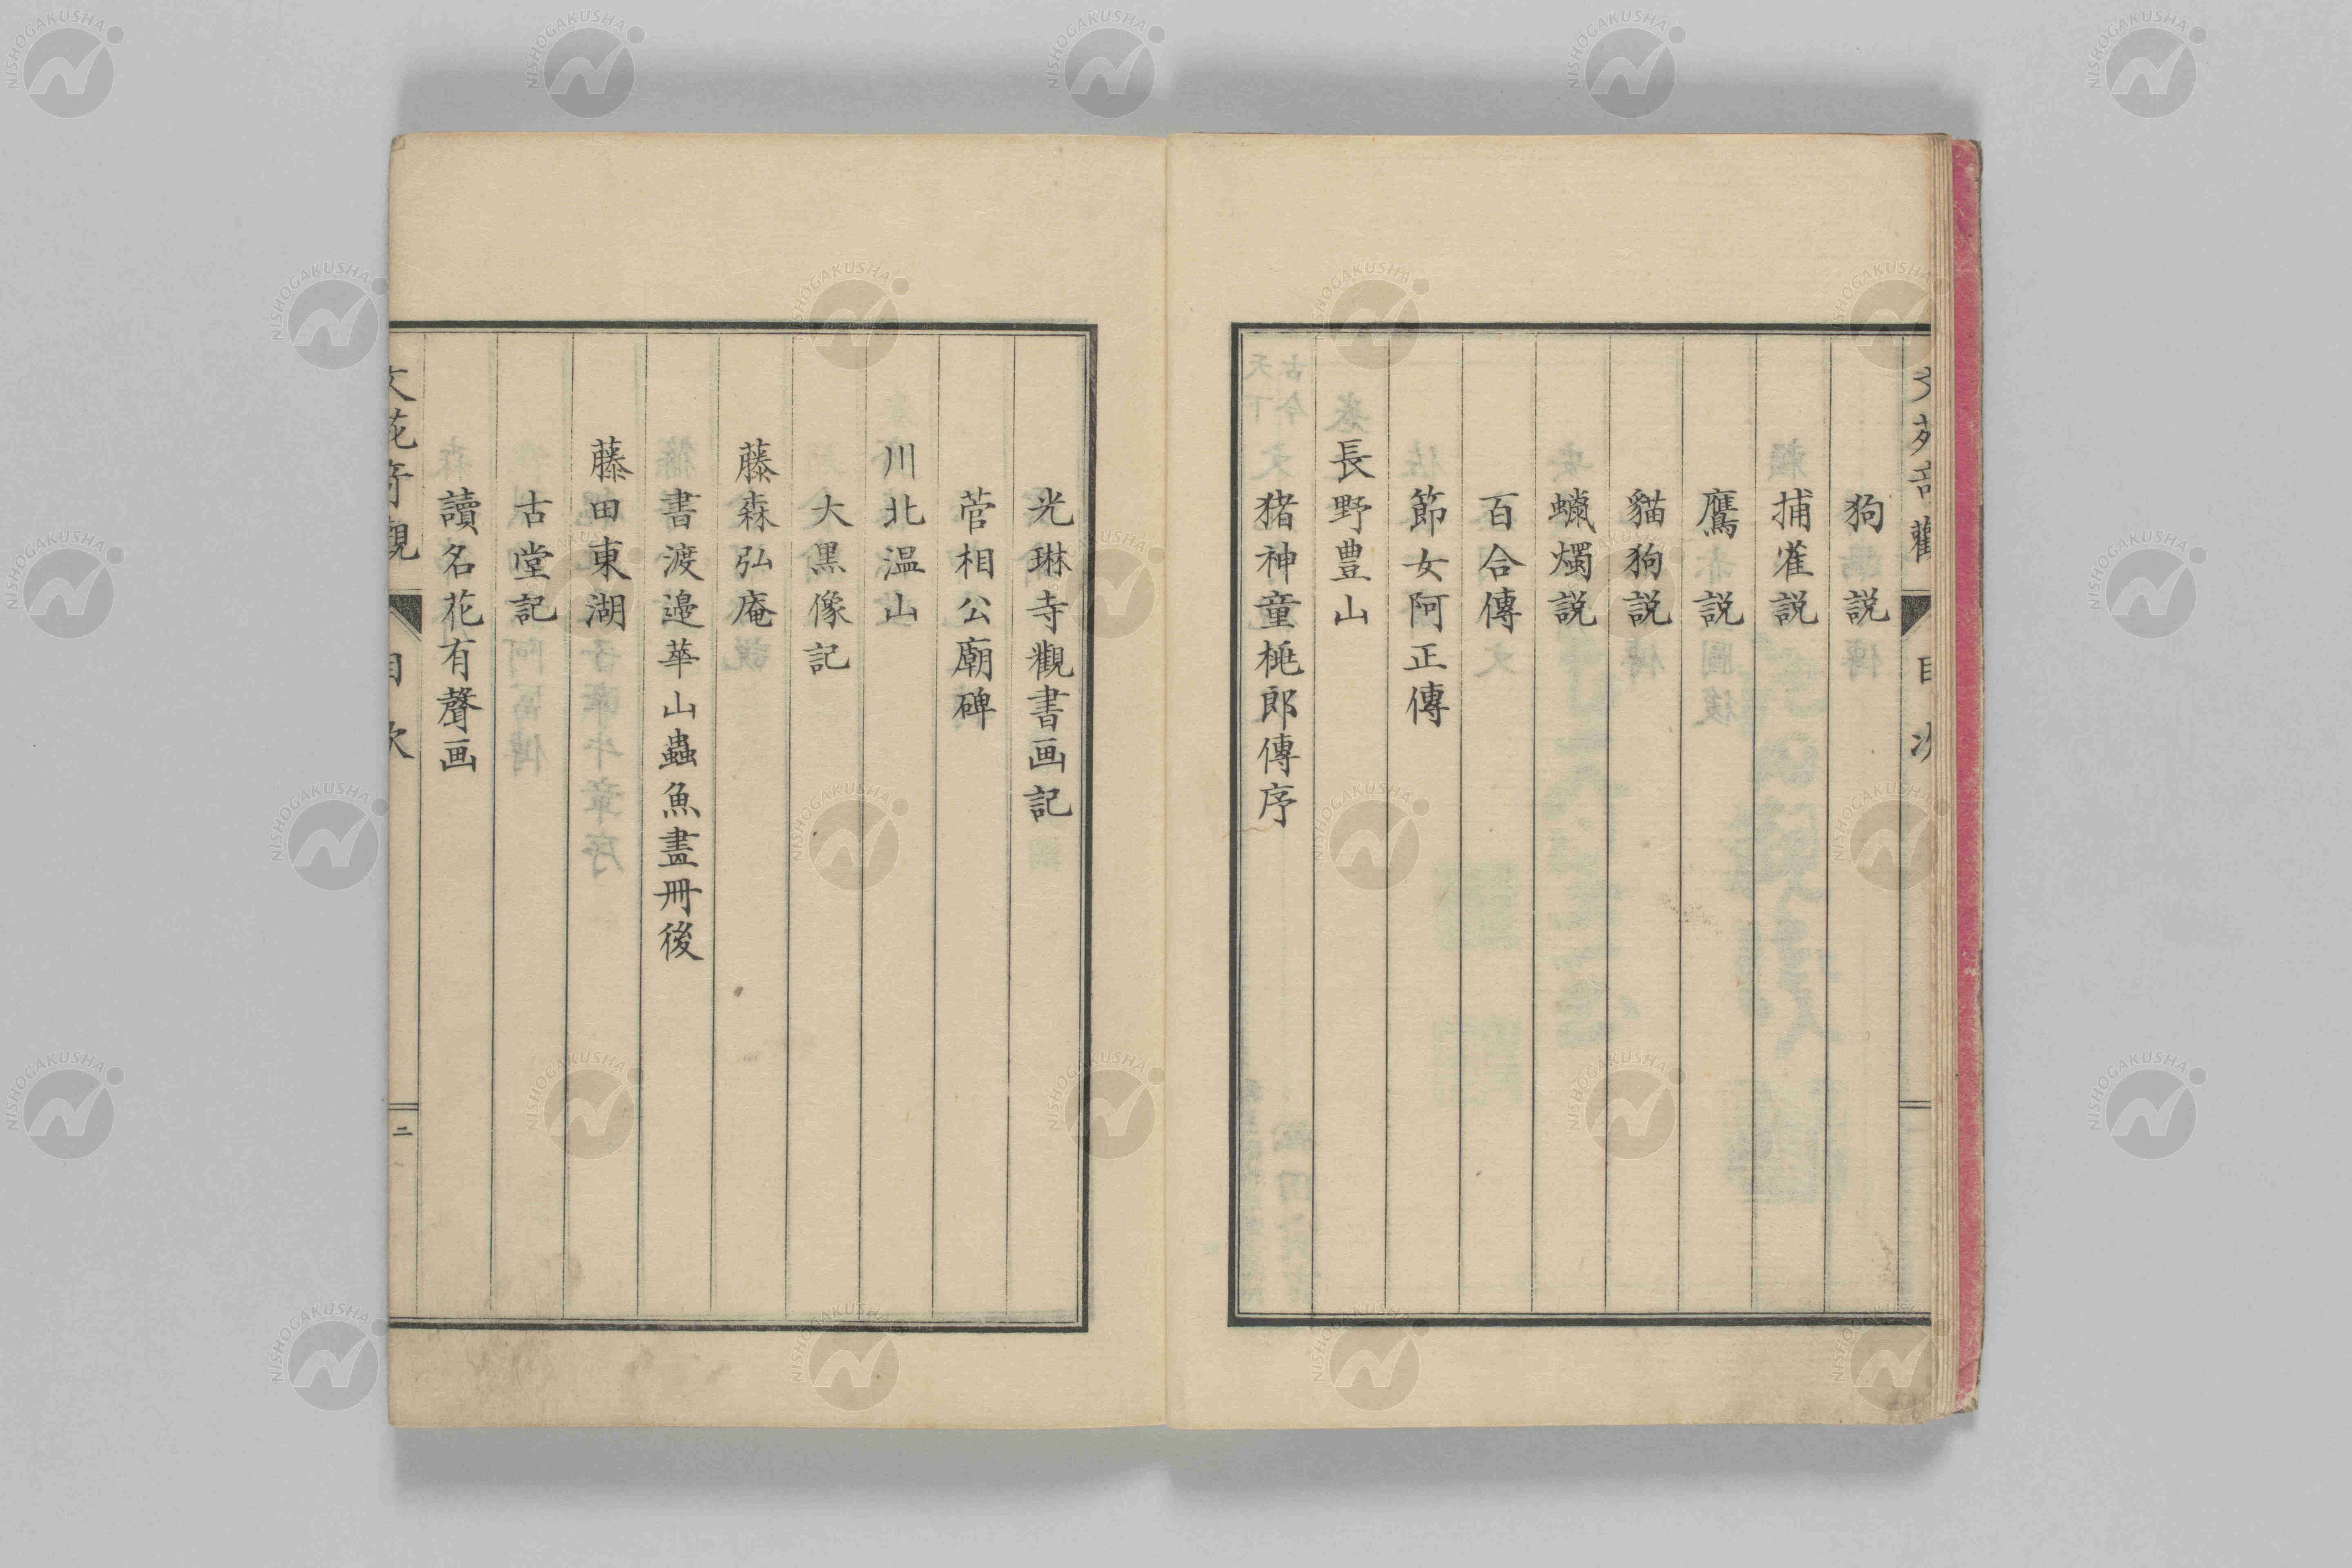 狗説
捕雀説
鷹説
貓狗説
蠟燭説
百合傳
節女阿正傳
長野豊山
猪神童桃郎傳序
光琳寺觀書画記
菅相公廟碑
川北温山
大黒像記
藤森弘庵
書渡邉華山蟲魚畫冊後
藤田東湖
古堂記
讀名花有聲画
目次
二
NISHOGAKUSHA